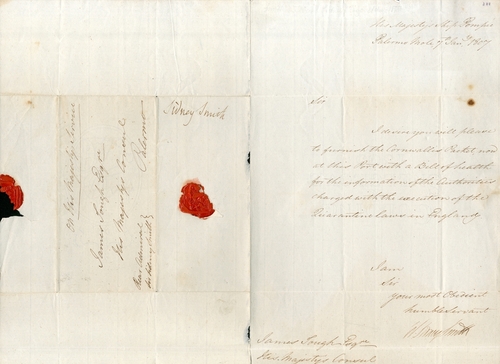 On His Majesty's Service
James Tough Esqr
His Majesty's Consul
Palermo
Rear Admiral
Sir Sidney Smith
Sidney Smith
His Majesty's Ship Pompée
Palermo 7th Jany 1807
Sir
I desire you will please
to furnish the Cornwallis Packet now
at this Port with a Bill of health
for the information of the Authorities
charged with the execution of the
Quarantine Laws in England
I am
Sir
your most Obedient
humble Servant
W Sidney Smith
James Tough Esqr
His Majesty's Consul